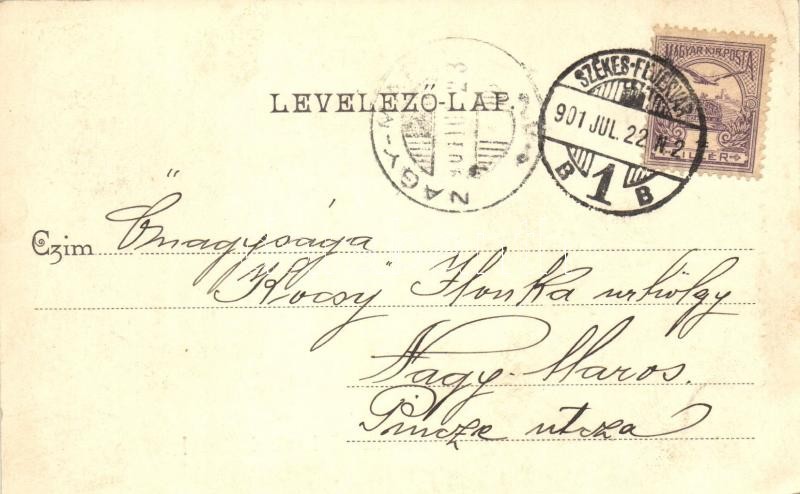 MAGYAR KIR. POSTA
SZÉKES-FEJÉRVÁR
901 JUL. 22 N 2
B 1 B
NAGY-M
LEVELEZŐ-LAP.
Czim Őnagysága
Kocsy Ilonka urhölgy
Nagy-Maros.
Pincze utcza